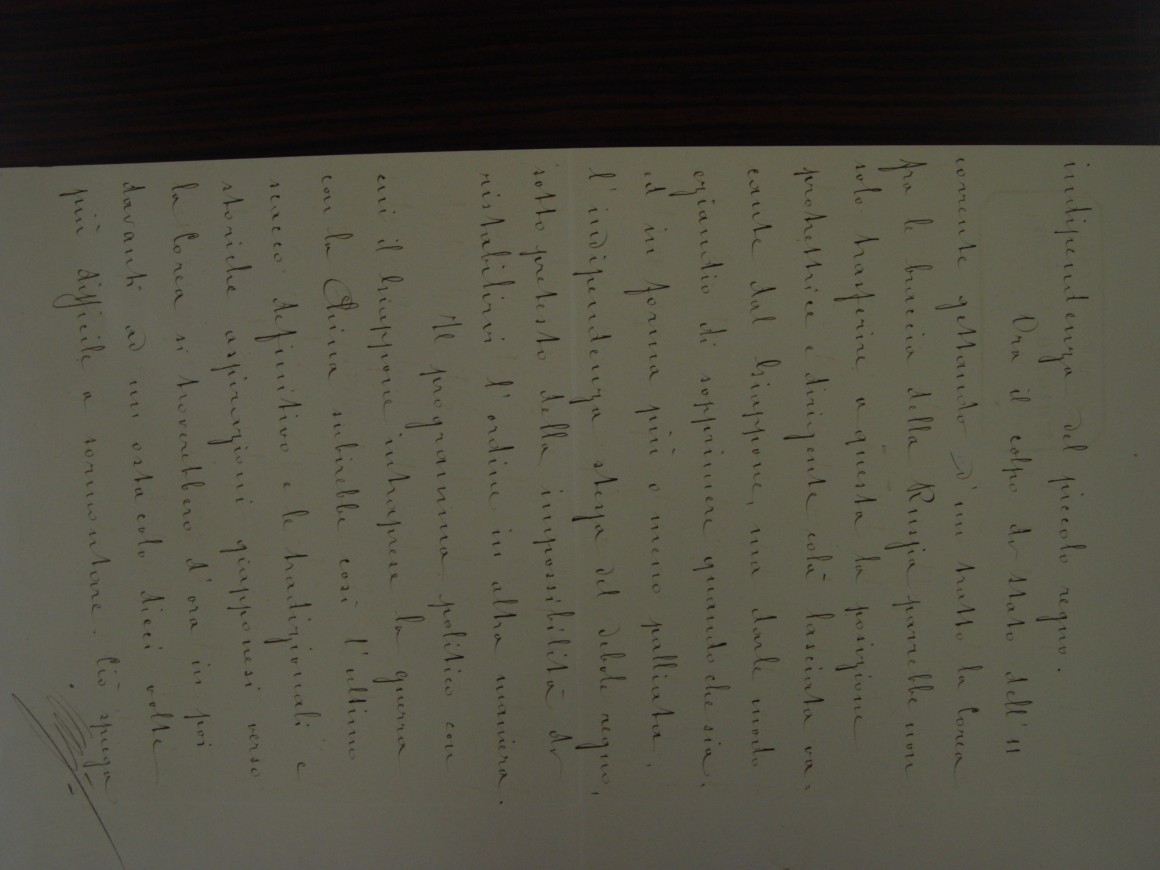 indipendenza del piccolo regno.
Ora il colpo di stato dell'11
corrente gettando d'un tratto la Corea
fra le braccia della Russia parrebbe non
solo trasferire a questa la posizione
protettrice e dirigente colà lasciata va-
cante dal Giappone, ma darle modo
eziandio di sopprimere quandochesia,
ed in forma più o meno palliata,
l'indipendenza stessa del debole regno,
sotto pretesto della impossibilità di
ristabilirvi l'ordine in altra maniera.
Il programma politico con
cui il Giappone intraprese la guerra
con la China subirebbe così l'ultimo
scacco definitivo e le tradizionali e
storiche aspirazioni giapponesi verso
la Corea si troverebbero d'ora in poi
davanti ad un ostacolo dieci volte
più difficile a sormontare. Ciò spiega